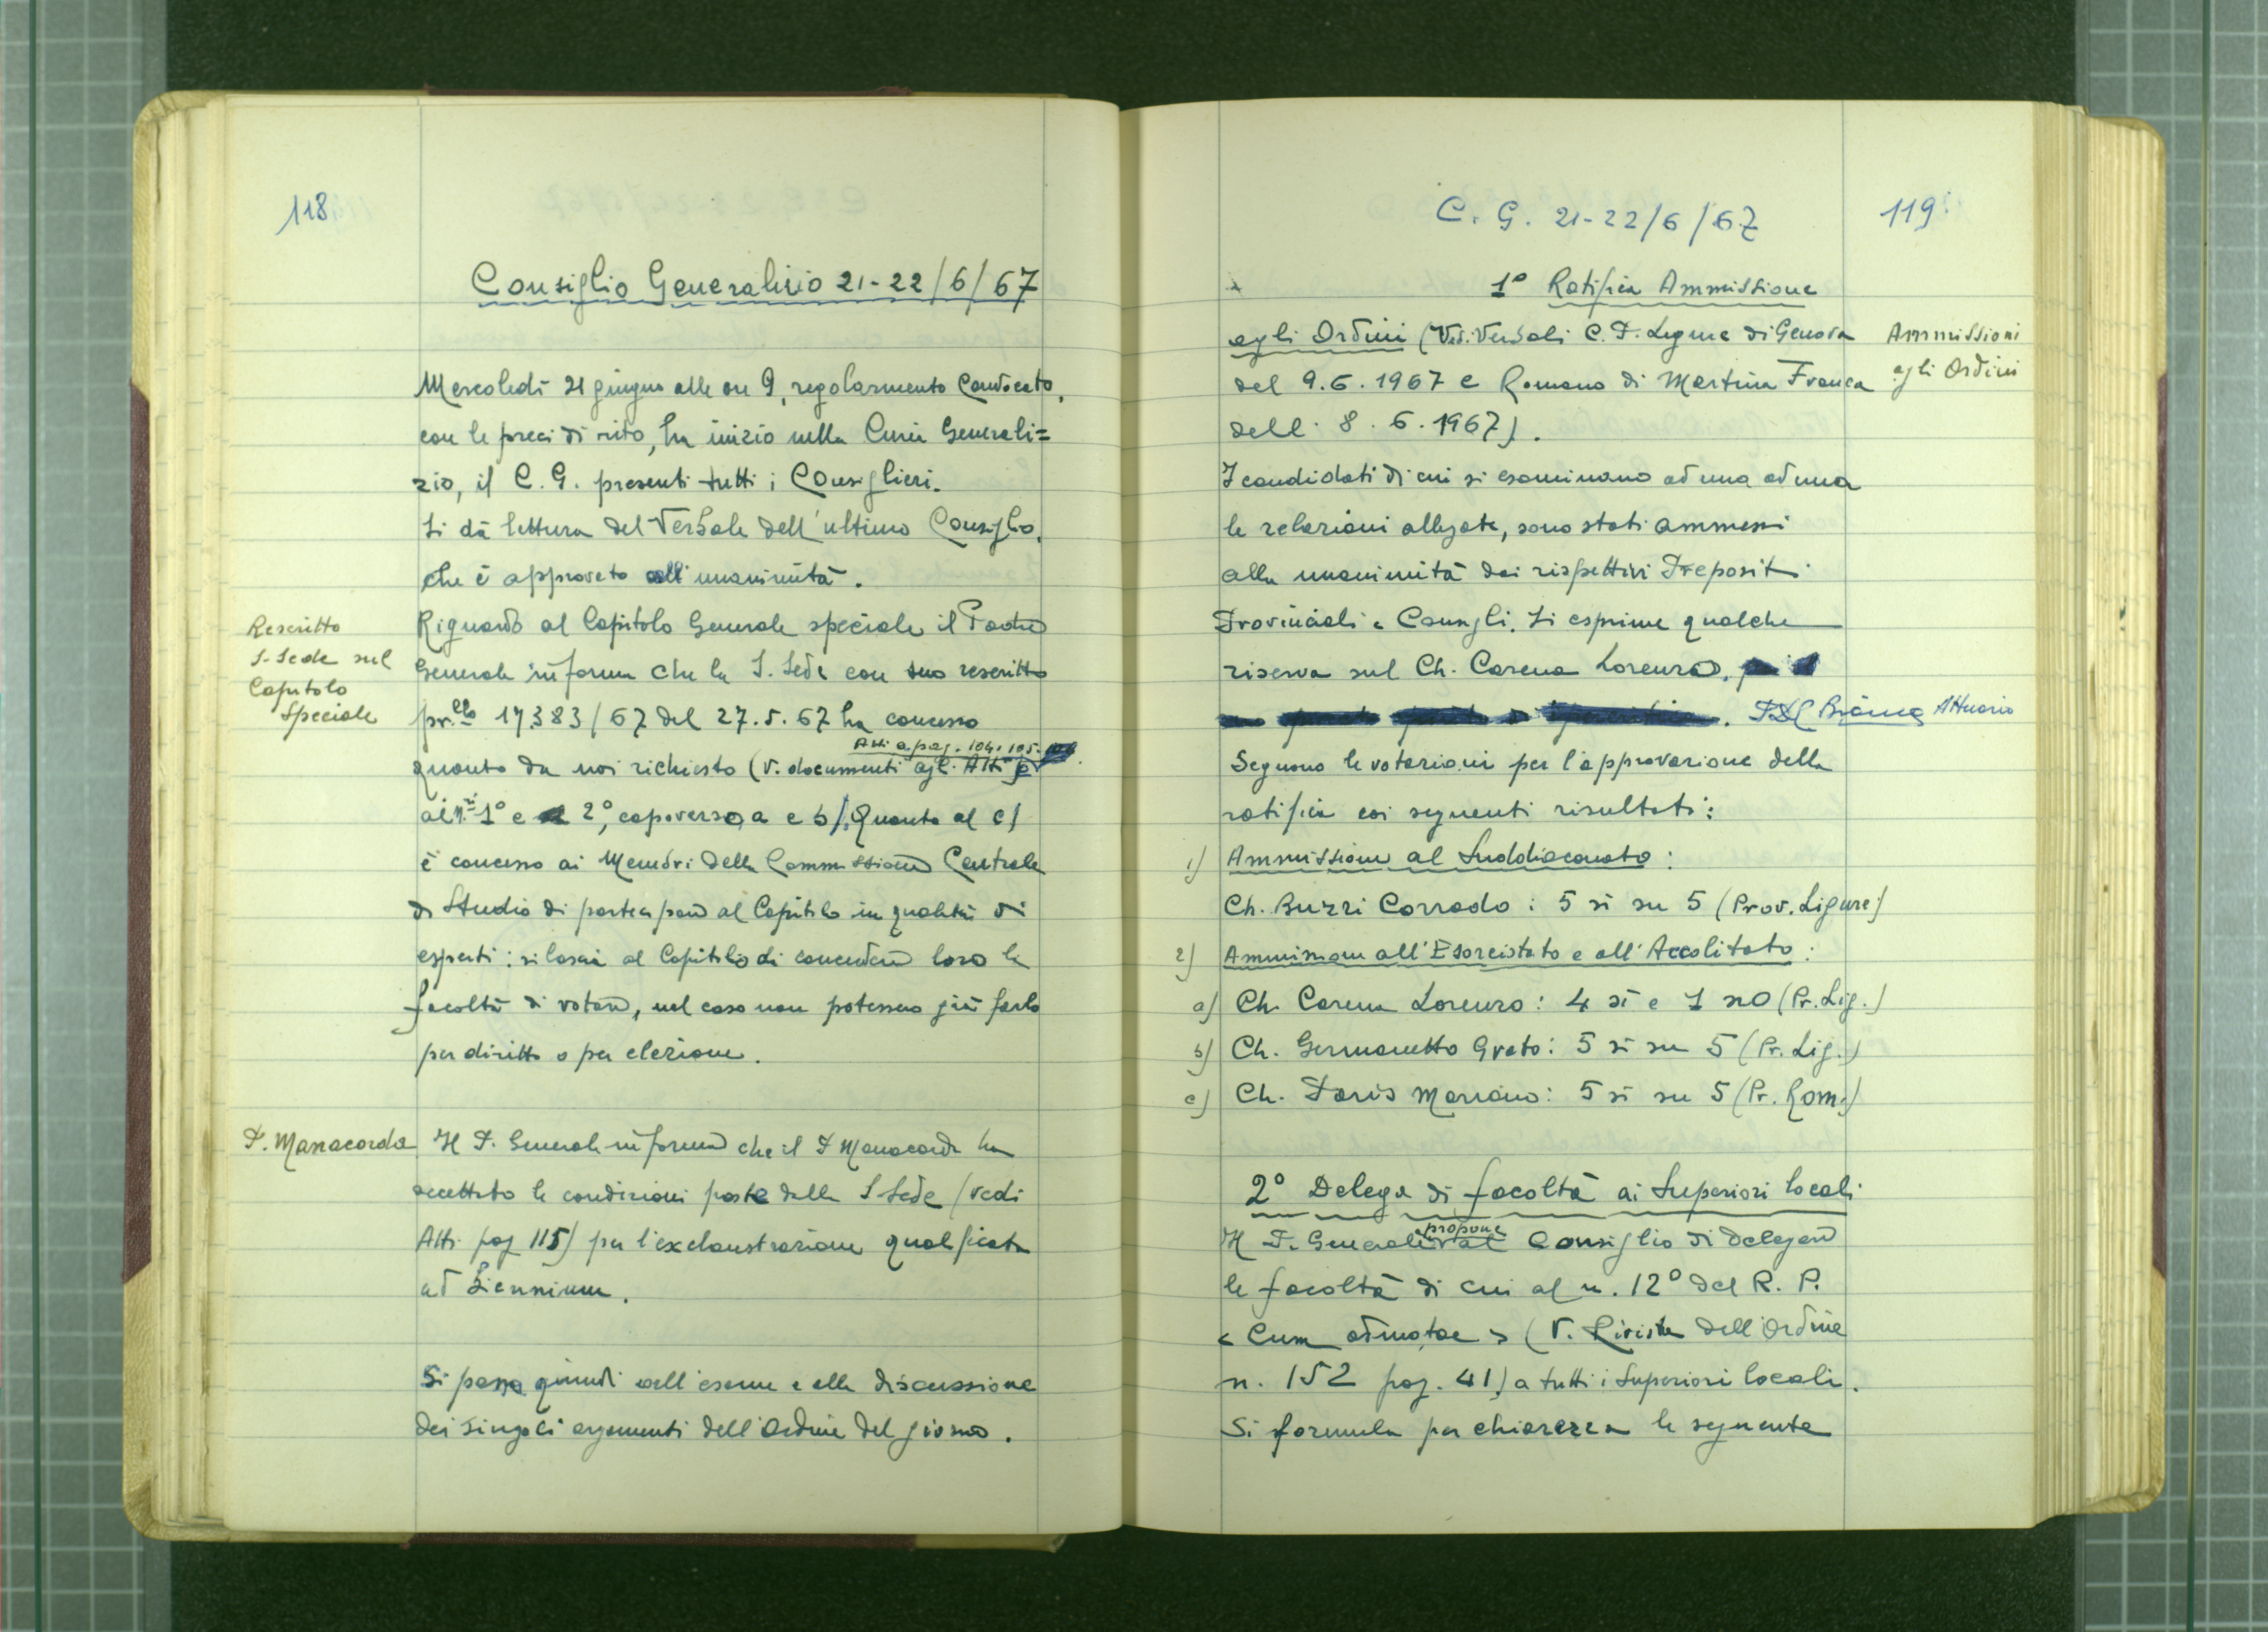 118
Consiglio Generalizio 21-22/6/67
Mercoledì 21 giugno alle ore 9, regolarmente convocato,
con le preci di rito, ha inizio nella Curia Generali=
zio, il C. G. presenti tutti i Consiglieri.
Si dà lettura del Verbale dell'ultimo Consiglio,
che è approvato all'unanimità.
Rescritto
S. Sede sul
Capitolo
Speciale
Riguardo al Capitolo Generale speciale il Padre
Generale informa che la S. Sede con suo rescritto
pr.llo 17383/67 del 27.5.67 ha concesso
Atti a pag. 104, 105.
quanto da noi richiesto (v. documenti agli Atti
ai n.ri 1° e 2°, capoverso, a e b). Quanto al c)
è concesso ai Membri della Commissione Centrale
di Studio di partecipare al Capitolo in qualità di
esperti: si lascia al Capitolo di concedere loro la
facoltà di votare, nel caso non potessero già farlo
per diritto o per elezione.
P. Manacorda
Il P. Generale informa che il P Manacorda ha
accettato le condizioni poste dalla S. Sede (vedi
Atti pag 115) per l'exclaustrazione qualificata
ad biennium.
Si passa quindi all'esame e alla discussione
dei singoli argomenti dell'Ordine del giorno.
C. G. 21-22/6/67
119
1° Ratifica Ammissione
agli Ordini (Ved. Verbali C. P. Ligure di Genova
Ammissioni
agli Ordini
del 9.6.1967 e Romano di Martina Franca
dell' 8.6.1967).
I candidati di cui si esaminano ad una ad una
le relazioni allegate, sono stati ammessi
alla unanimità dai rispettivi Prepositi
Provinciali e Consigli. Si esprime qualche
riserva sul Ch. Carena Lorenzo.
Bianco Attuario
Seguono le votazioni per l'approvazione della
ratifica coi seguenti risultati:
1) Ammissione al Suddiaconato:
Ch. Buzzi Corrado: 5 sì su 5 (Prov. Ligure)
2) Ammissione all'Esorcistato e all'Accolitato:
a) Ch. Carena Lorenzo: 4 sì e 1 no (Pr. Lig.)
b) Ch. Germanetto Grato: 5 sì su 5 (Pr. Lig.)
c) Ch. Paris Marziano: 5 sì su 5 (Pr. Rom.)
2° Delega di facoltà ai Superiori locali
propone
Il P. Generale al Consiglio di delegare
le facoltà di cui al n. 12° del R. P.
< Cum admotae > (V. Rivista dell'Ordine
n. 152 pag. 41) a tutti i Superiori locali.
Si formula per chiarezza la seguente